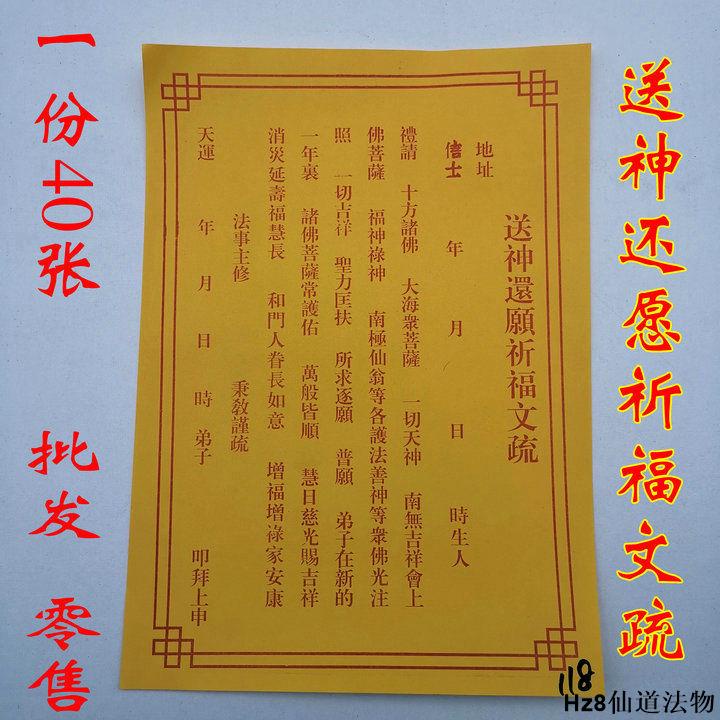 送神还愿祈福文疏
送神還願祈福文疏
地址
信士 年 月 日 時生人
禮請 十方諸佛 大海衆菩薩 一切天神 南無吉祥會上
佛菩薩 福神祿神 南極仙翁等各護法善神等衆佛光注
照 一切吉祥 聖力匡扶 所求逐願 普願 弟子在新的
一年裏 諸佛菩薩常護佑 萬般皆順 慧日慈光賜吉祥
消災延壽福慧長 和門人眷長如意 增福增祿家安康
法事主修 秉教謹疏
天運 年 月 日 時 弟子 叩拜上申
一份40张 批发 零售
118
Hz8仙道法物